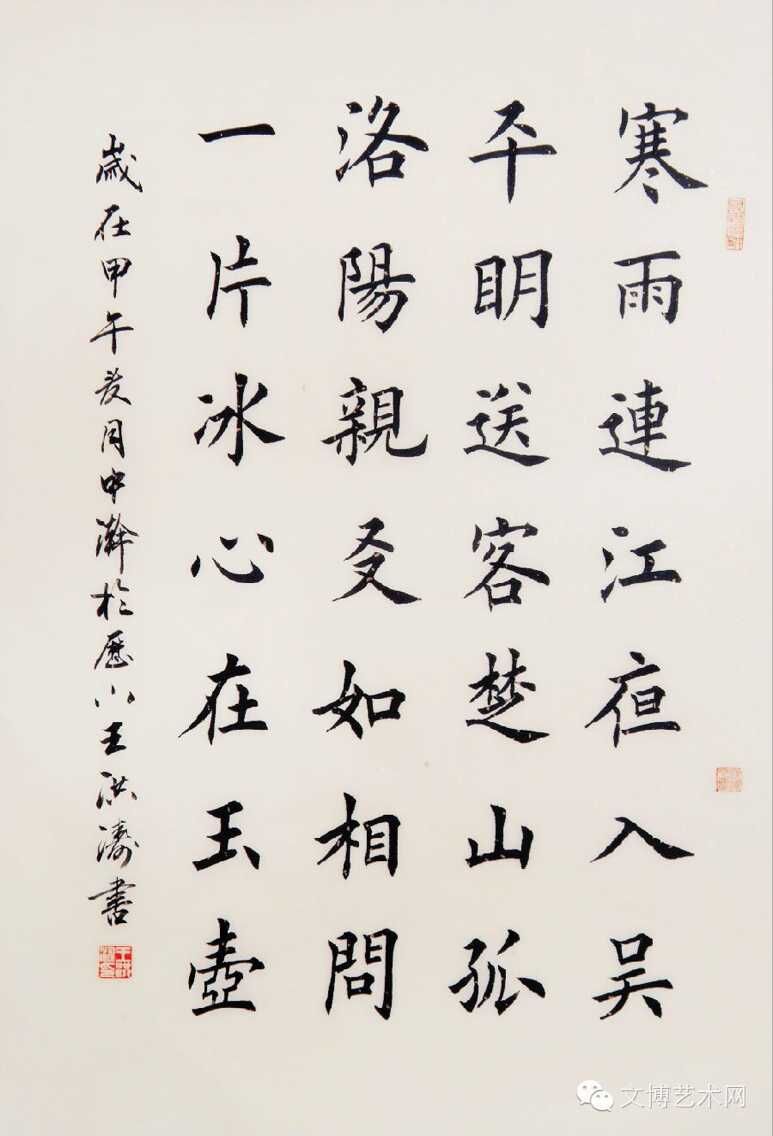 寒雨連江夜入吴
平明送客楚山孤
洛陽親友如相問
一片冰心在玉壺
歲在甲午癸月中澣於歷下王洪濤書
文博艺术网